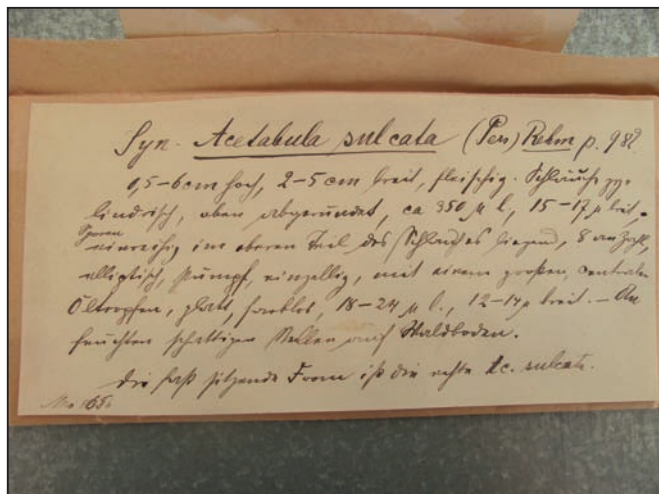 Syn. Acetabula sulcata (Pers) Rehm p. 982
0,5–6cm hoch, 2–5 cm breit, fleischig. Schläuche zy-
lindrisch, oben abgerundet, ca 350 µ l, 15–17 µ breit.
Sporen
einreihig im oberen Teil des Schlauches liegend, 8 an Zahl,
elliptisch, stumpf, einzellig, mit einem großen, centralen
Öltropfen, glatt, farblos, 18–24 µ l., 12–14 µ breit. – An
feuchten schattigen Stellen auf Waldboden.
Die fast sitzende Form ist die echte Ac. sulcata.